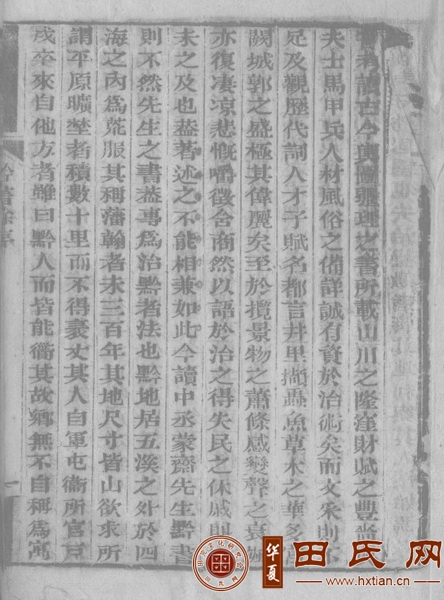 嘗者讀古今輿圖疆理之書所載山川之隆窪財賦之豐嗇
夫士馬甲兵人材風俗之備詳誠有資於治術矣而文采則
足及觀歷代詞人才子賦名都言井里擷蟲魚草木之華
闕城郭之盛極其偉麗矣至於攬景物之蕭條感變聲之哀
亦復凄凉悲慨嚼徵含商然以語於治之得失民之休戚則
未之及也葢著述之不能相兼如此今讀中丞蒙齋先生黔書
則不然先生之書葢專為治黔者法也黔地居五溪之外於四
海之內為荒服其稱藩翰者未三百年其地尺寸皆山欲求所
謂平原曠埜者積數十里而不得袤丈其人自軍屯衞所官
戍卒來自他方者雖曰黔人而皆能衞其故鄉無不自稱為寓
黔書
一
華夏
田氏网
www.hxtian.cn